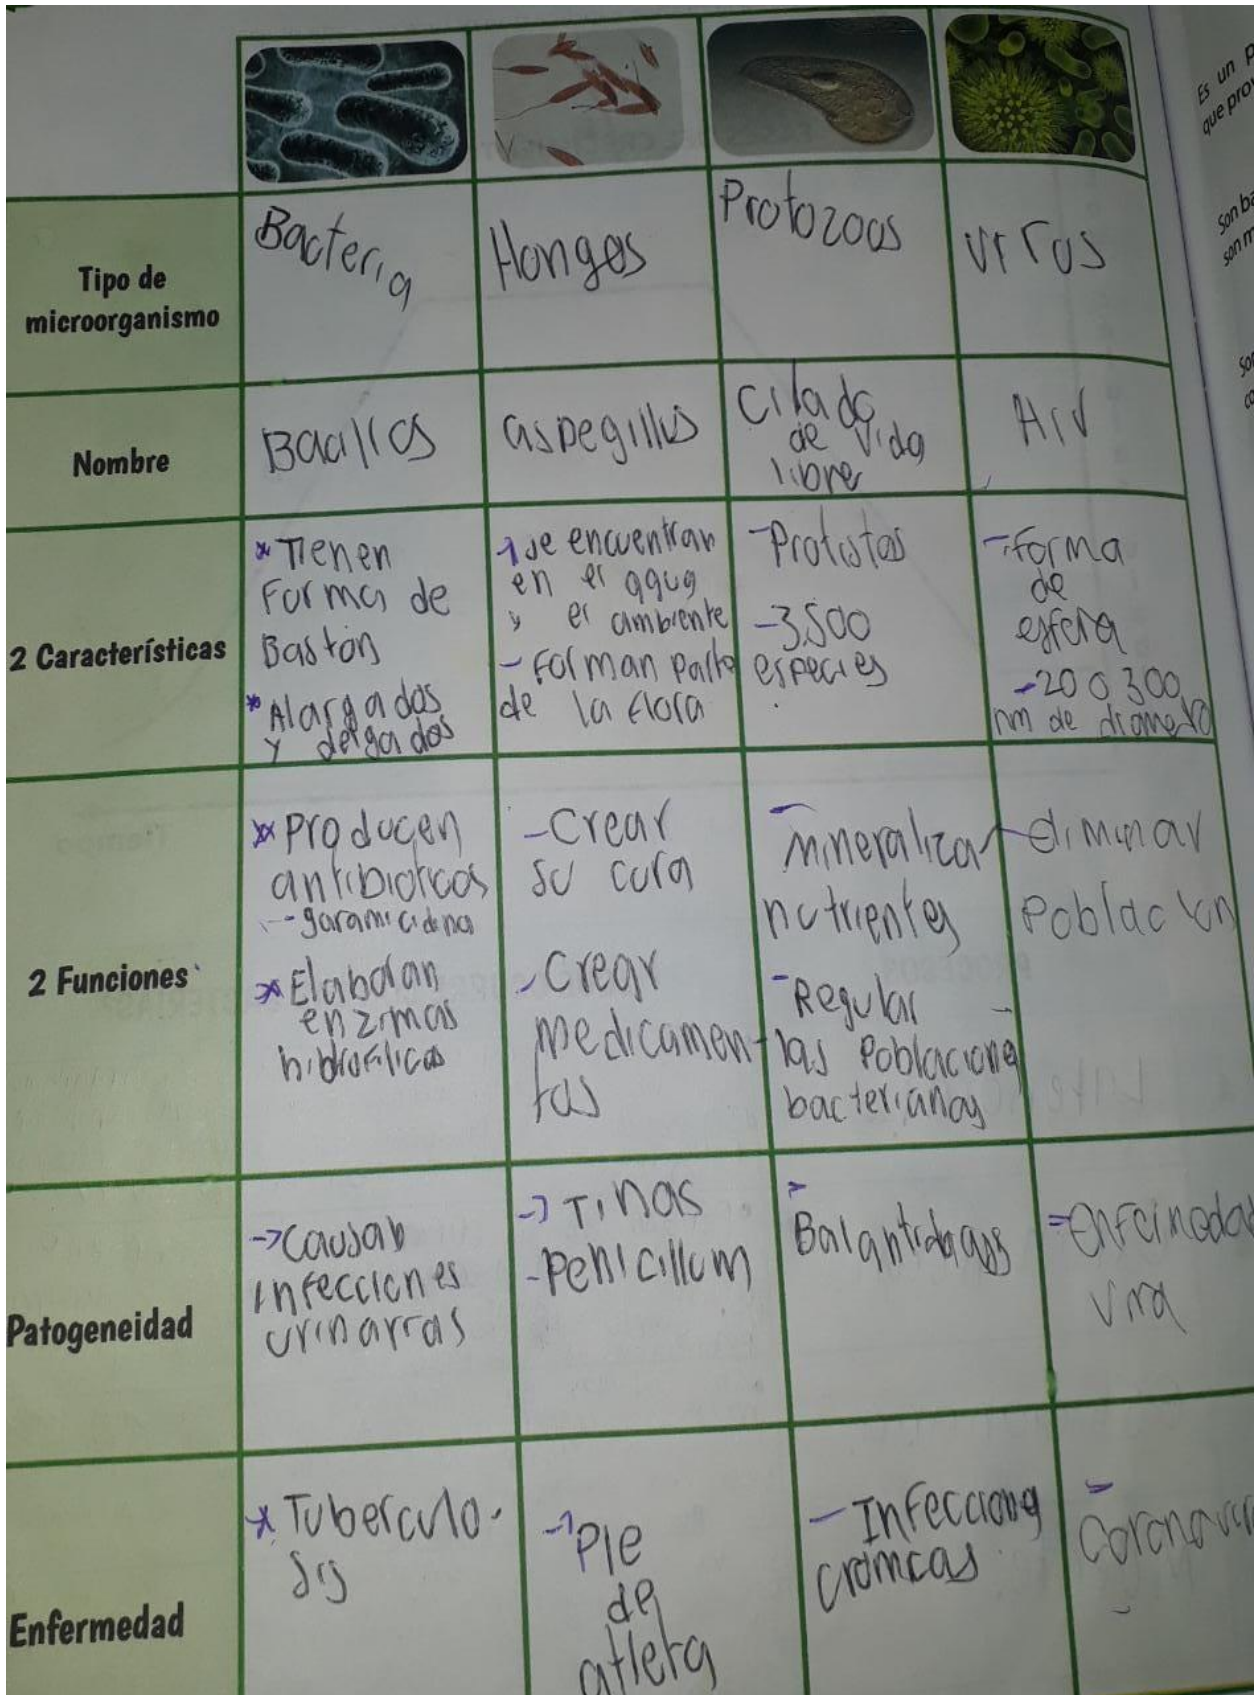 Es un p
que prov
Son ba
son m
Tipo de
microorganismo
Bacteria
Hongos
Protozoos
Virus
Nombre
Bacilios
aspegillus
Cilado
de vida
libre
HIV
2 Características
* Tienen
Forma de
Bastón
* Alargados
y delgados
se encuentran
en el agua
y el ambiente
- Forman parte
de la flora
- Protistas
- 3,500
especies
- forma
de
esfera
- 20 a 300
nm de diametro
2 Funciones
* Producen
antibioticos
* Elaboran
enzimas
- Crear
su cura
- Crear
medicamen-
tos
- mineralizar
nutrientes
- Regular
las Poblaciones
bacterianas
- eliminar
Poblacion
Patogeneidad
-> Causan
infecciones
urinarias
-> Tinas
- Penicillum
Enfermedad
* Tuberculo-
sis
- Pie
de
atleta
- Infecciones
cronicas